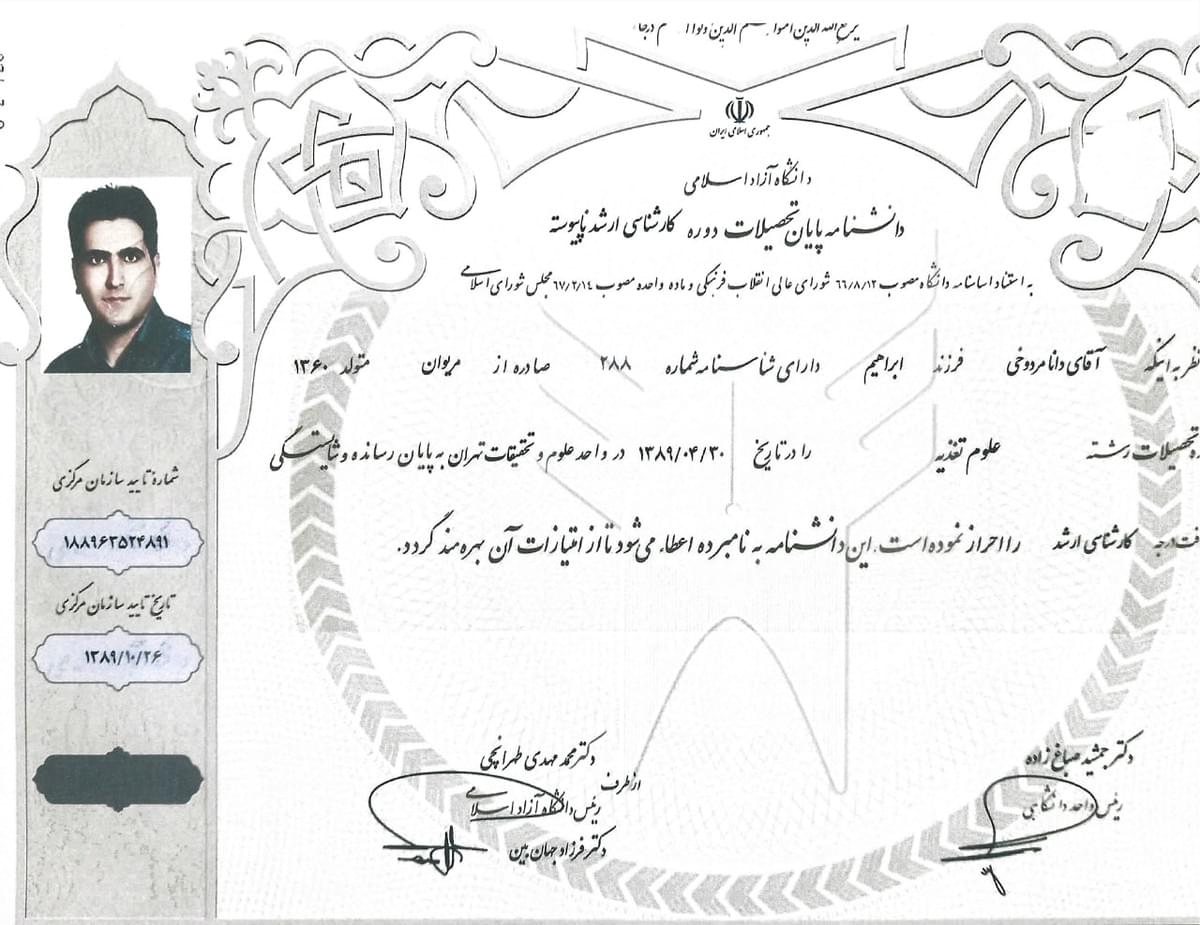 یرفع الله الذین آمنوا منکم والذین اوتوا العلم درجات
جمهوری اسلامی ایران
دانشگاه آزاد اسلامی
دانشنامه پایان تحصیلات دوره کارشناسی ارشد ناپیوسته
به استناد اساسنامه دانشگاه مصوب ۶۶/۸/۱۲ شورای عالی انقلاب فرهنگی و ماده واحده مصوب ۶۷/۲/۱۴ مجلس شورای اسلامی
نظر به اینکه آقای دانا مردوخی فرزند ابراهیم دارای شناسنامه شماره ۲۸۸ صادره از مریوان متولد ۱۳۶۰
تحصیلات رشته علوم تغذیه را در تاریخ ۱۳۸۹/۰۴/۳۰ در واحد علوم و تحقیقات تهران به پایان رسانده و شایستگی
درجه کارشناسی ارشد را احراز نموده است. این دانشنامه به نامبرده اعطاء می‌شود تا از امتیازات آن بهره‌مند گردد.
شماره تایید سازمان مرکزی
۱۸۸۹۶۳۵۲۴۸۹۱
تاریخ تایید سازمان مرکزی
۱۳۸۹/۱۰/۲۶
دکتر جمشید صباغ زاده
رئیس واحد دانشگاهی
دکتر محمد مهدی طهرانچی
از طرف
رئیس دانشگاه آزاد اسلامی
دکتر فرزاد جهان بین